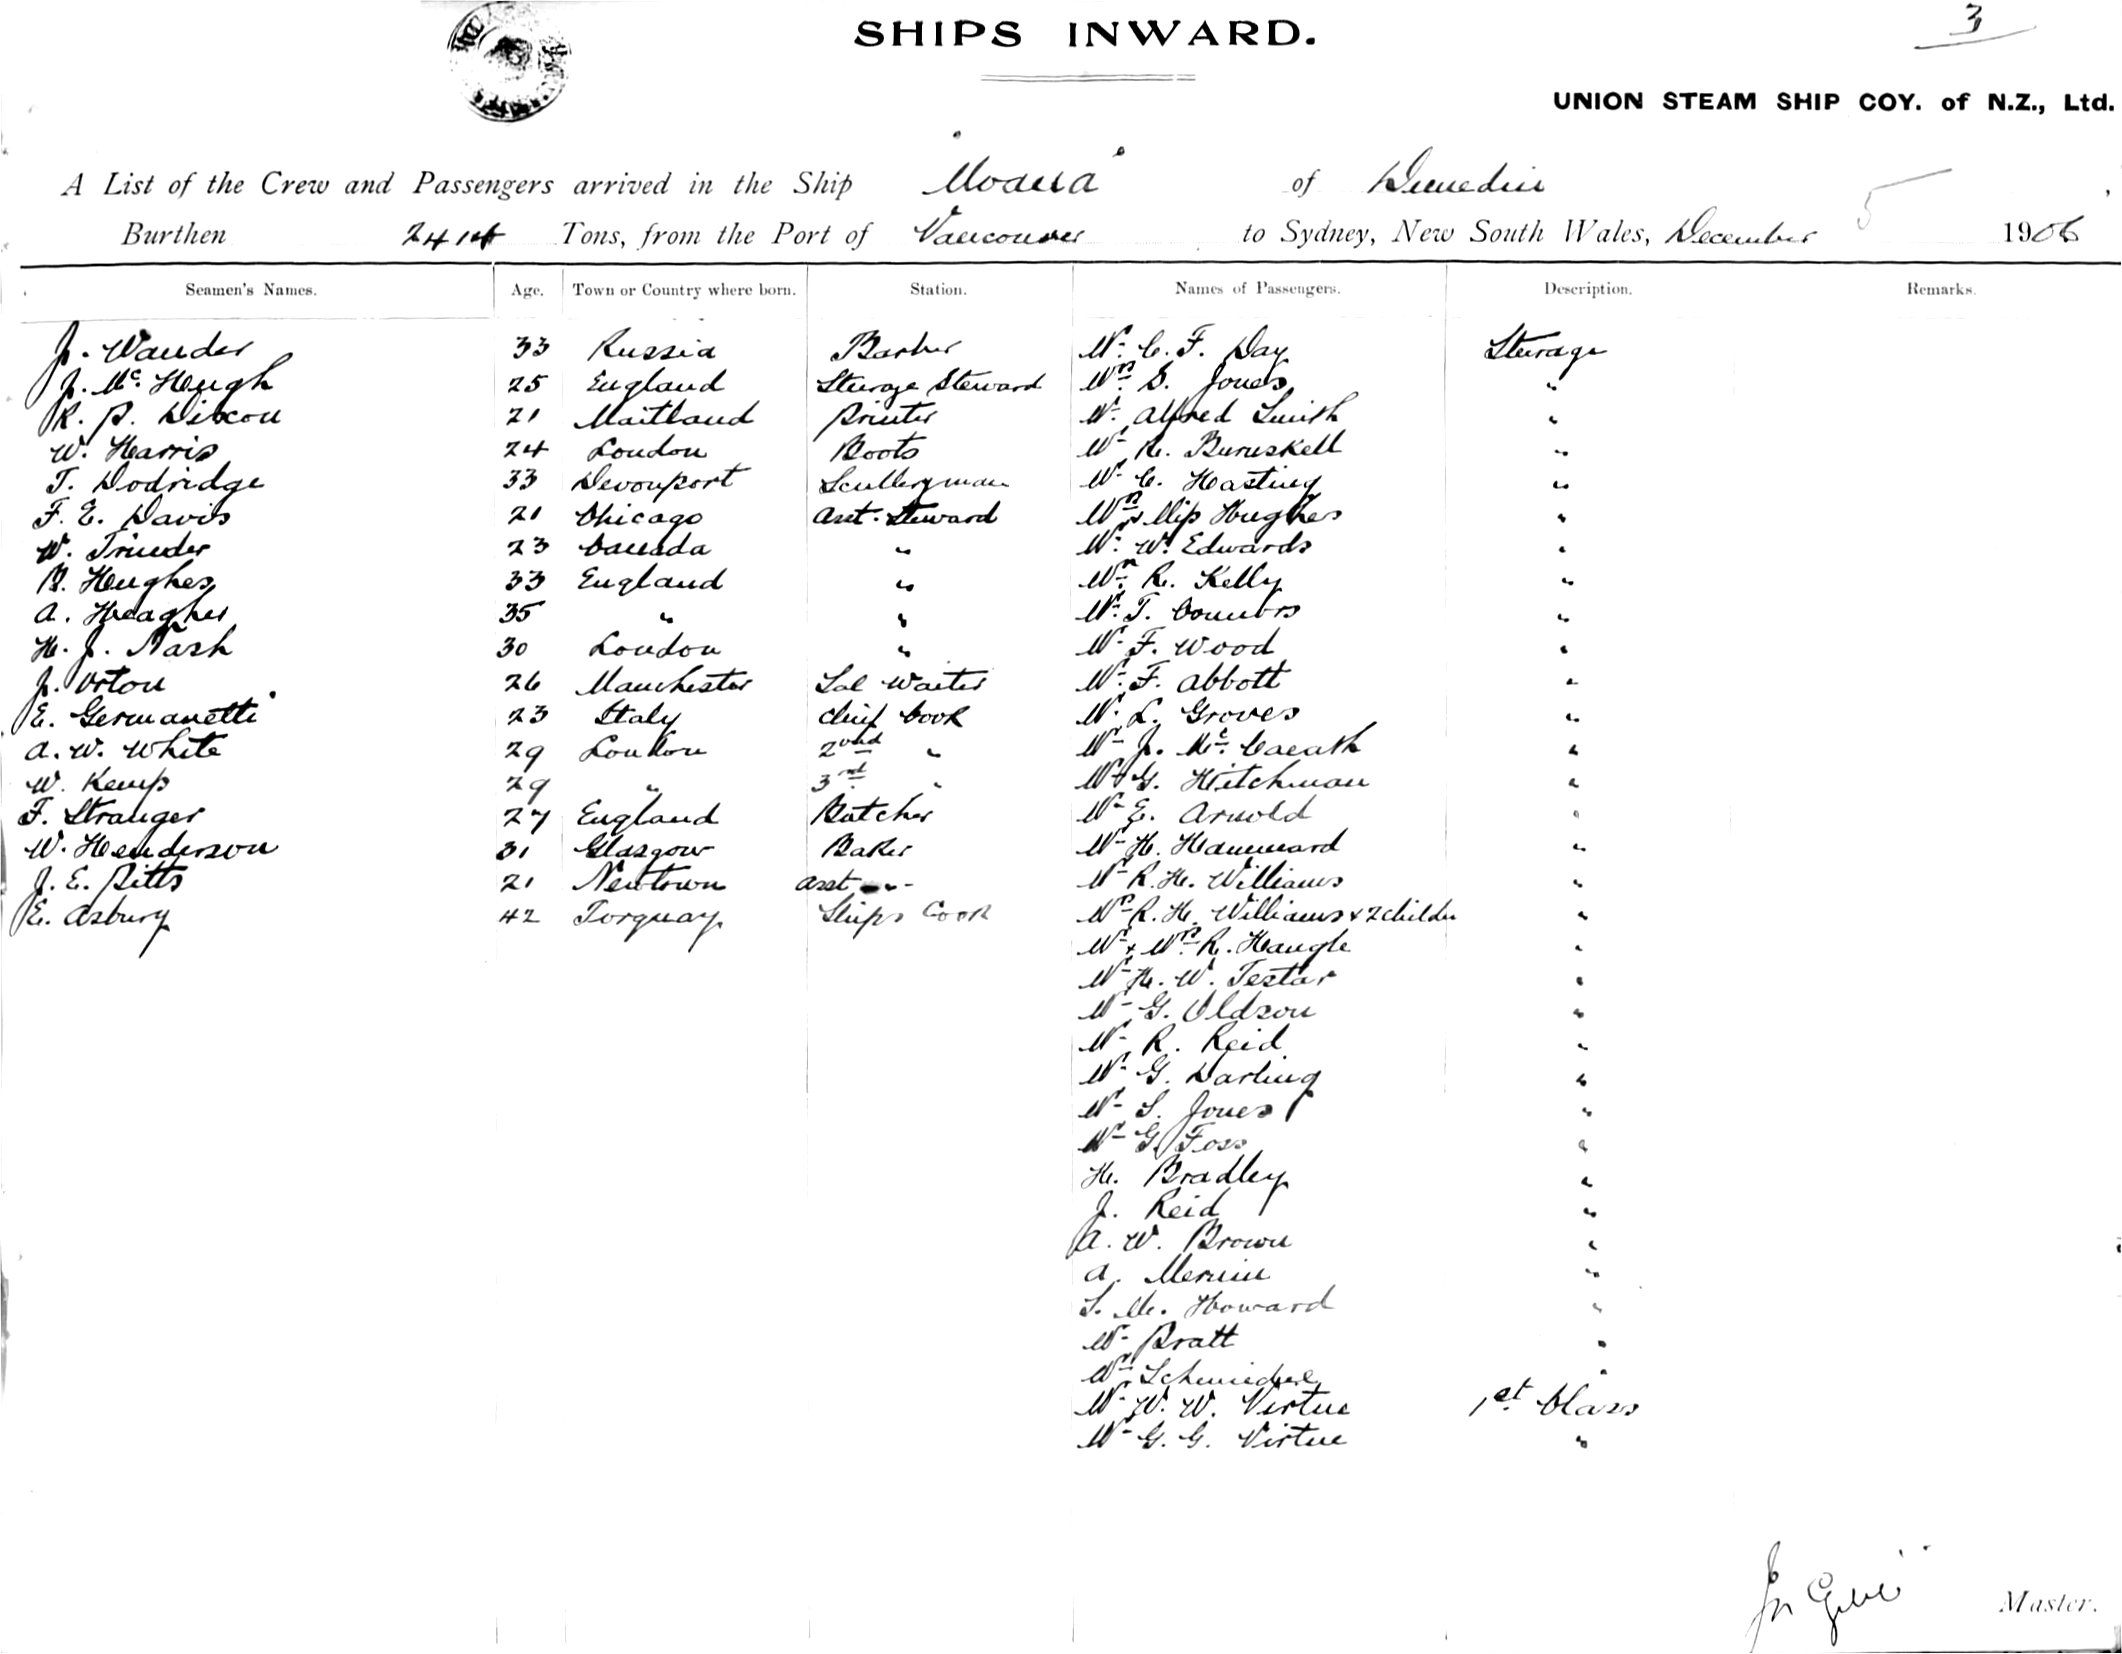 SHIPS INWARD.
3
UNION STEAM SHIP COY. of N.Z., Ltd.
A List of the Crew and Passengers arrived in the Ship "Moana" of Dunedin
Burthen 2414 Tons, from the Port of Vancouver to Sydney, New South Wales, December 5 1906
Seamen's Names. Age. Town or Country where born. Station. Names of Passengers. Description. Remarks.
J. Wander 33 Russia Barber Mr. C. F. Day Sterage
J. McHugh 25 England Sterage Steward Mrs. S. Jones "
R. P. Dixon 21 Maitland Printer Mr. Alfred Smith "
W. Harris 24 London Boots Mr. R. "
T. Dodridge 33 Devonport Scullery man Mr. C. Hasting "
F. E. Davis 21 Chicago Asst. Steward Mrs & Miss Hughes "
W. Trinder 23 Canada " Mr. W. Edwards "
B. Hughes 33 England " Mr. R. Kelly "
A. 35 " " Mr. T. Connors "
H. J. Nash 30 London " Mr. F. Wood "
J. Orton 26 Manchester Sal Waiter Mr. F. Abbott "
E. Germanetti 23 Italy Chief Cook Mr. L. Groves "
A. W. White 29 London 2nd " Mr J. Mc "
W. Kemp 29 " 3rd " Mr G. Hitchman "
F. Stranger 27 England Butcher Mr E. Arnold "
W. Henderson 31 Glasgow Baker Mr H. "
J. E. Pitts 21 Newtown Asst " Mr R. H. Williams "
E. Asbury 42 Torquay Ships Cook Mrs R. H. Williams & 2 childn "
Mr & Mrs R. "
Mr H. W. Testar "
Mr G. Oldson "
Mr R. Reid "
Mr G. Darling "
Mr S. Jones "
Mr G. Foss "
H. Bradley "
J. Reid "
A. W. Brown "
A. "
S. M. Howard "
Mr Pratt "
"
Mr. W. W. Virtue 1st Class
Mr G. G. Virtue "
Master.